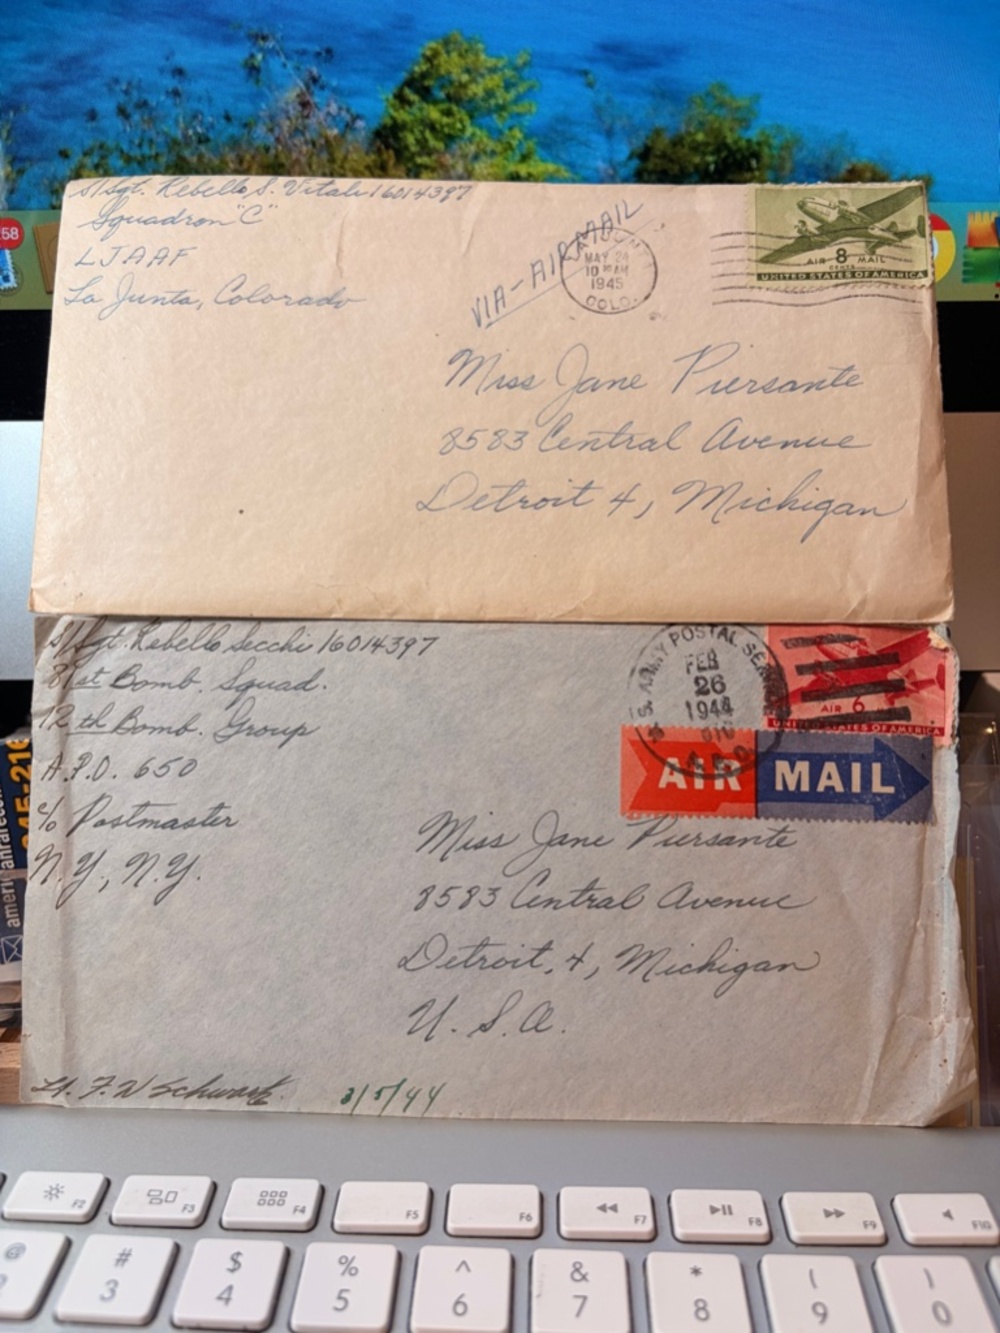 58
S/Sgt. Rebello S. Vitali 16014397
Squadron "C"
LJAAF
La Junta, Colorado
VIA-AIR MAIL
MAY 24
10 AM
1945
COLO.
AIR 8 MAIL
CENTS
UNITED STATES OF AMERICA
Miss Jane Piersante
8583 Central Avenue
Detroit 4, Michigan
S/Sgt. Rebello Secchi 16014397
81st Bomb. Squad.
12th Bomb. Group
A.P.O. 650
c/o Postmaster
N.Y., N.Y.
U.S. ARMY POSTAL SERVICE
FEB
26
1944
A.P.O.
AIR 6
UNITED STATES OF AMERICA
AIR MAIL
Miss Jane Piersante
8583 Central Avenue
Detroit, 4, Michigan
U. S. A.
Lt. F. W Schwark
3/5/44
F2
F3
F4
F5
F6
F7
F8
F9
F10
@
# 3
$ 4
% 5
^ 6
& 7
* 8
( 9
) 0